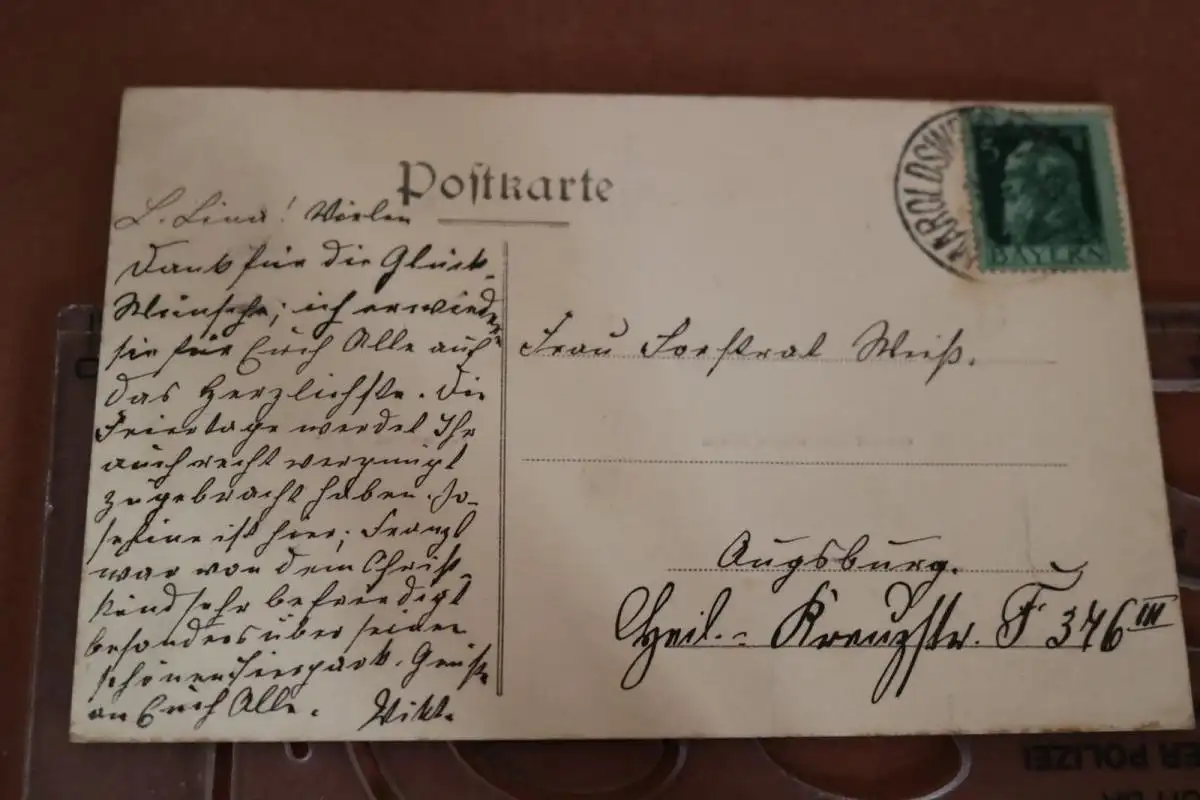 Postkarte
L. Lina! Vielen
Dank für die Glück-
Wünsche; ich erwiedere
sie für Euch Alle auf
das Herzlichste. Die
Feiertage werdet Ihr
auch recht vergnügt
zugebracht haben. Jo-
sefine ist hier; Franzl
war von dem Christ-
kind sehr befriedigt
besonders über seinen
schönen Tierpark. Grüße
an Euch Alle. Vikt.
5
BAYERN
Frau Forstrat Weiß.
Augsburg.
Heil.- Kreuzstr. F 376 III
ER POLIZEI